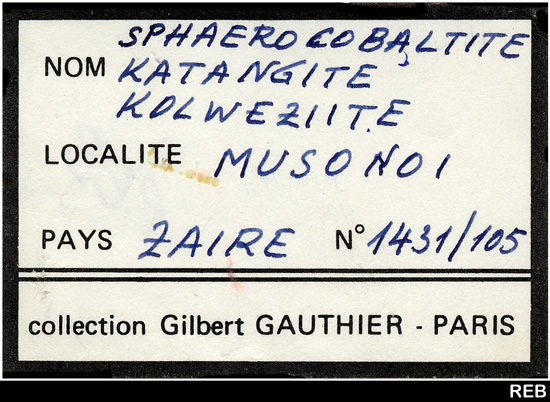 SPHAEROCOBALTITE
NOM KATANGITE
KOLWEZIITE
LOCALITE MUSONOI
PAYS ZAIRE N° 1431/105
collection Gilbert GAUTHIER - PARIS
REB